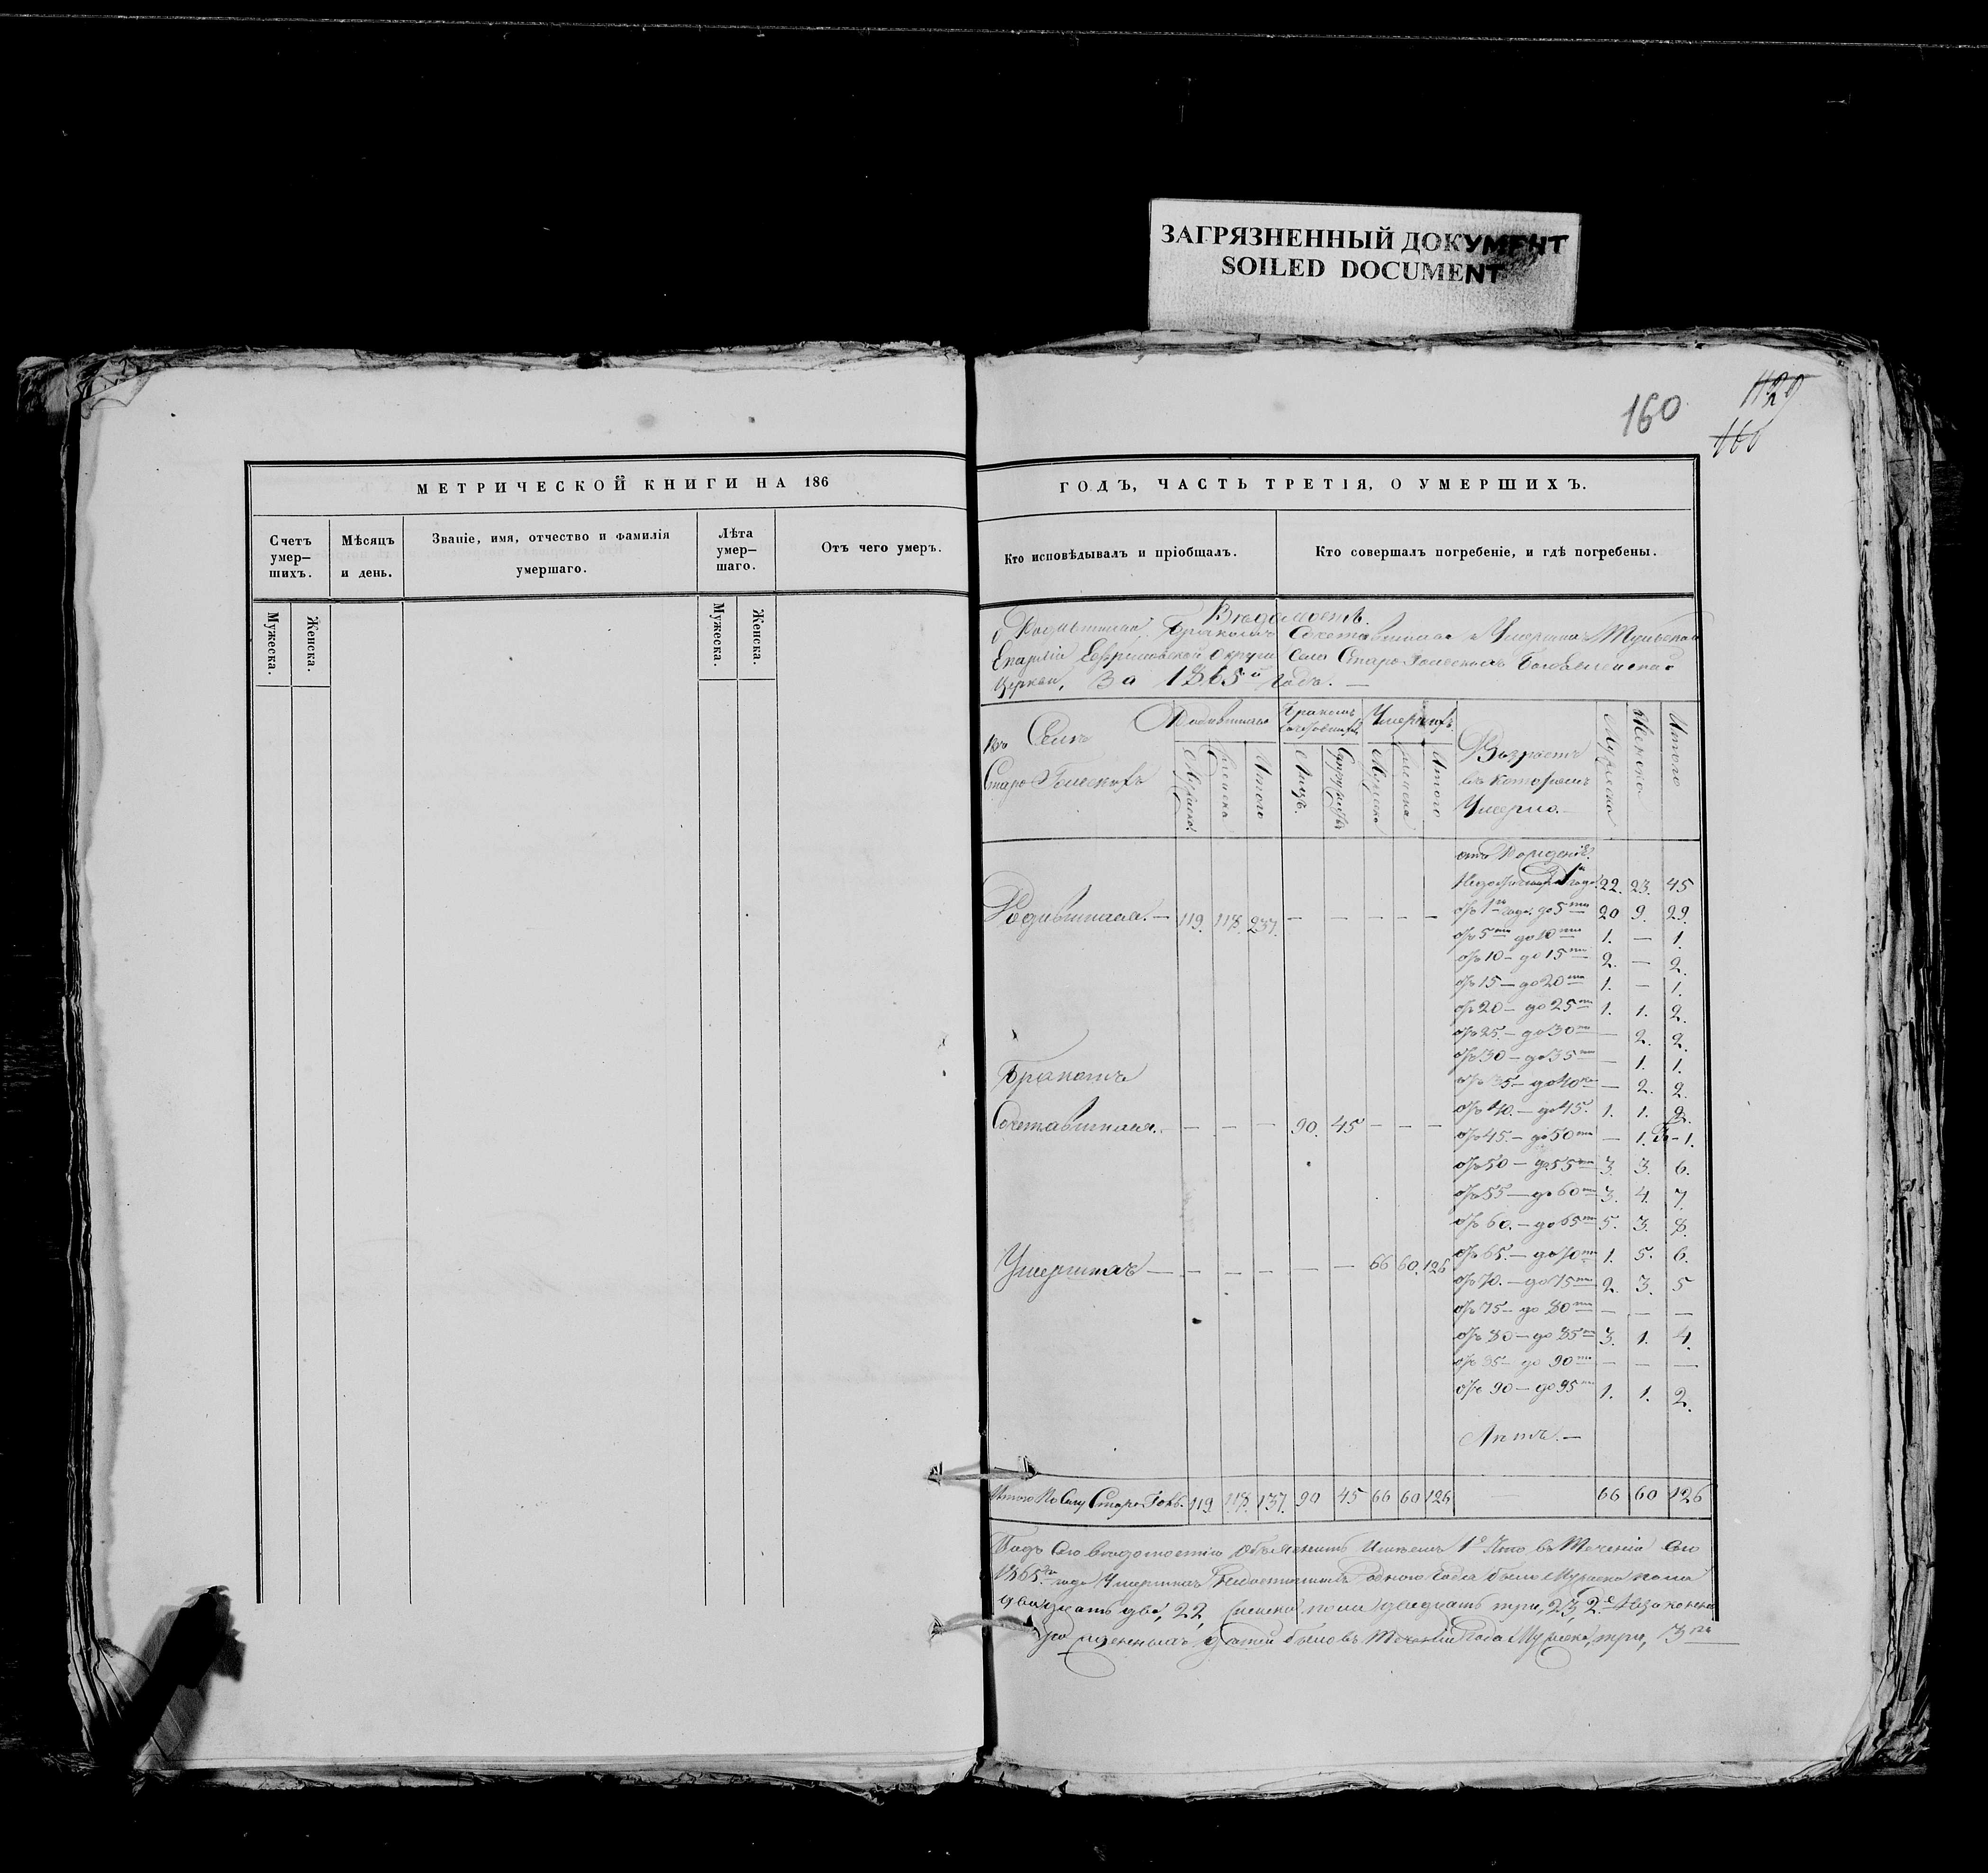 ЗАГРЯЗНЕННЫЙ ДОКУМЕНТ
SOILED DOCUMENT
160
МЕТРИЧЕСКОЙ КНИГИ НА 186
Счетъ умер-шихъ.
Мѣсяцъ и день.
Званіе, имя, отчество и фамилія умершаго.
Лѣта умер-шаго.
Отъ чего умеръ.
Мужеска.
Женска.
Мужеска.
Женска.
ГОДЪ, ЧАСТЬ ТРЕТІЯ, О УМЕРШИХЪ.
Кто исповѣдывалъ и пріобщалъ.
Кто совершалъ погребеніе, и гдѣ погребены.
Вѣдомость.
о Родившихся, Бракомъ Сочетавшихся и Умершихъ Тульской
Епархіи Ефремовской Округи Села Старо Гольскихъ
Церкви, За 1865й Годъ. —
Въ Селѣ
Старо Гольскихъ
Родившихся
Бракомъ
Умершихъ
Мужеска
Женска
Итого
Лицъ
Супружествъ
Мужеска
Женска
Итого
Возрастъ
въ которомъ
Умерло. —
Мужеска
Женска
Итого
отъ Рожденія
года 22. 23. 45
Родившихся. — 119. 118. 237. — — — — —
отъ 1го года до 5ти 20 9. 29.
отъ 5ти до 10ти 1. — 1.
отъ 10 — до 15ти 2. — 2.
отъ 15 — до 20ти 1. — 1.
отъ 20 — до 25ти 1. 1. 2.
отъ 25. — до 30ти — 2. 2.
отъ 30 — до 35ти — 1. 1.
отъ 35 — до 40ка — 2. 2.
отъ 40. — до 45. 1. 1. 2.
Бракомъ
Сочетавшихся. — — — 90. 45 — — —
отъ 45. — до 50ти — 1. 1.
отъ 50 — до 55ти 3. 3. 6.
отъ 55 — до 60ти 3. 4. 7.
отъ 60. — до 65ти 5. 3. 8.
отъ 65. — до 70ти 1. 5. 6.
Умершихъ — — — — — — 66 60. 126
отъ 70. — до 75ти 2. 3. 5
отъ 75 — до 80ти — — —
отъ 80 — до 85ти 3. 1. 4.
отъ 85 — до 90ти — — —
отъ 90 — до 95ти 1. 1. 2.
Лѣтъ. —
Итого по Селу Старо 119 118. 137. 90 45 66 60 126 — 66 60 126
Подъ Сею вѣдомостію Объяснить Имѣемъ 1е Что въ Теченіи Сего
1865го года Умершихъ одного Года было Мужеска пола
двадцать два, 22, Женска пола двадцать три, 23, 2е Незаконно
рожденныхъ дѣтей было въ Теченіи Года Мужеска, три, 3